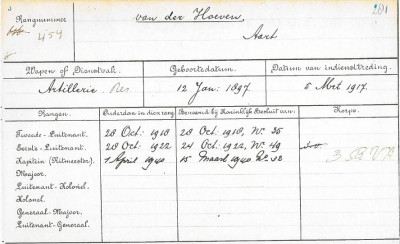 Rangnummer
van der Hoeven,
201
454
Aart
Wapen of Dienstvak.
Geboortedatum.
Datum van indiensttreding.
Artillerie. Res.
12 Jan: 1897.
5 Mrt 1917.
Rangen.
Ouderdom in dien rang.
Benoemd bij Koninklijk Besluit van:
Korps.
Tweede-Luitenant.
28 Oct: 1918
28 Oct: 1918, No. 35
Eerste-Luitenant.
28 Oct: 1922
24 Oct: 1922, No. 49
Kapitein (Ritmeester).
1 April 1940
15 Maart 1940 No.
Majoor.
Luitenant-Kolonel.
Kolonel.
Generaal-Majoor.
Luitenant-Generaal.